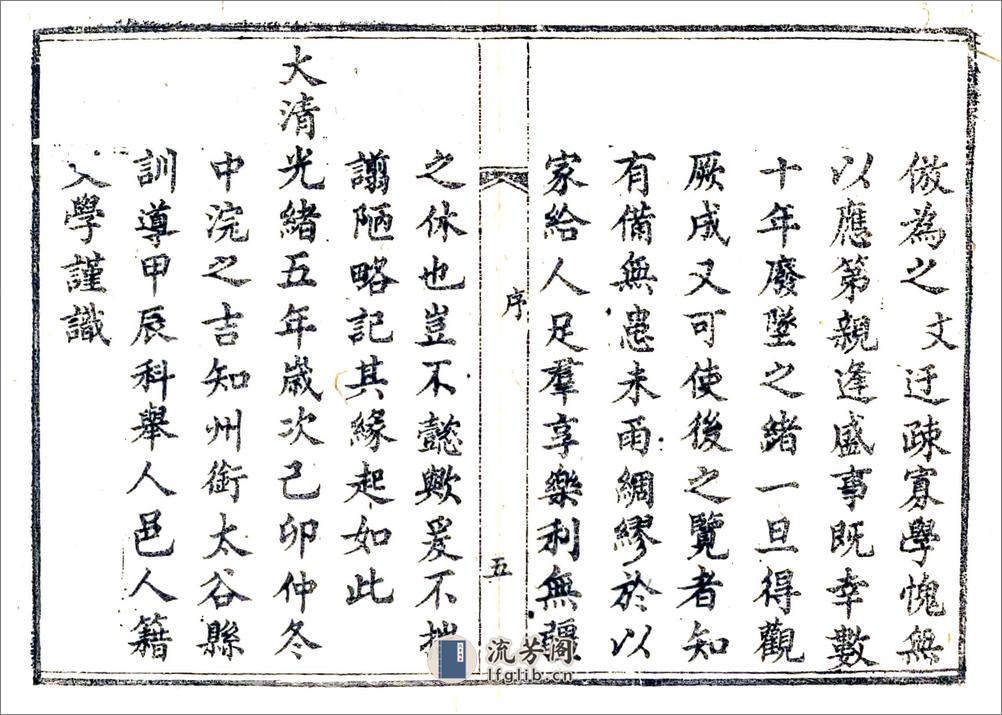 倣為之文迂疎寡學愧無
以應第親逢盛事既幸數
十年廢墜之緒一旦得觀
厥成又可使後之覽者知
有備無患未雨綢繆於以
家給人足羣享樂利無疆
序
五
之休也豈不懿歟爰不揣
譾陋略記其緣起如此
大清光緒五年歲次己卯仲冬
中浣之吉知州銜太谷縣
訓導甲辰科舉人邑人籍
入學謹識
流芳阁
lfglib.cn